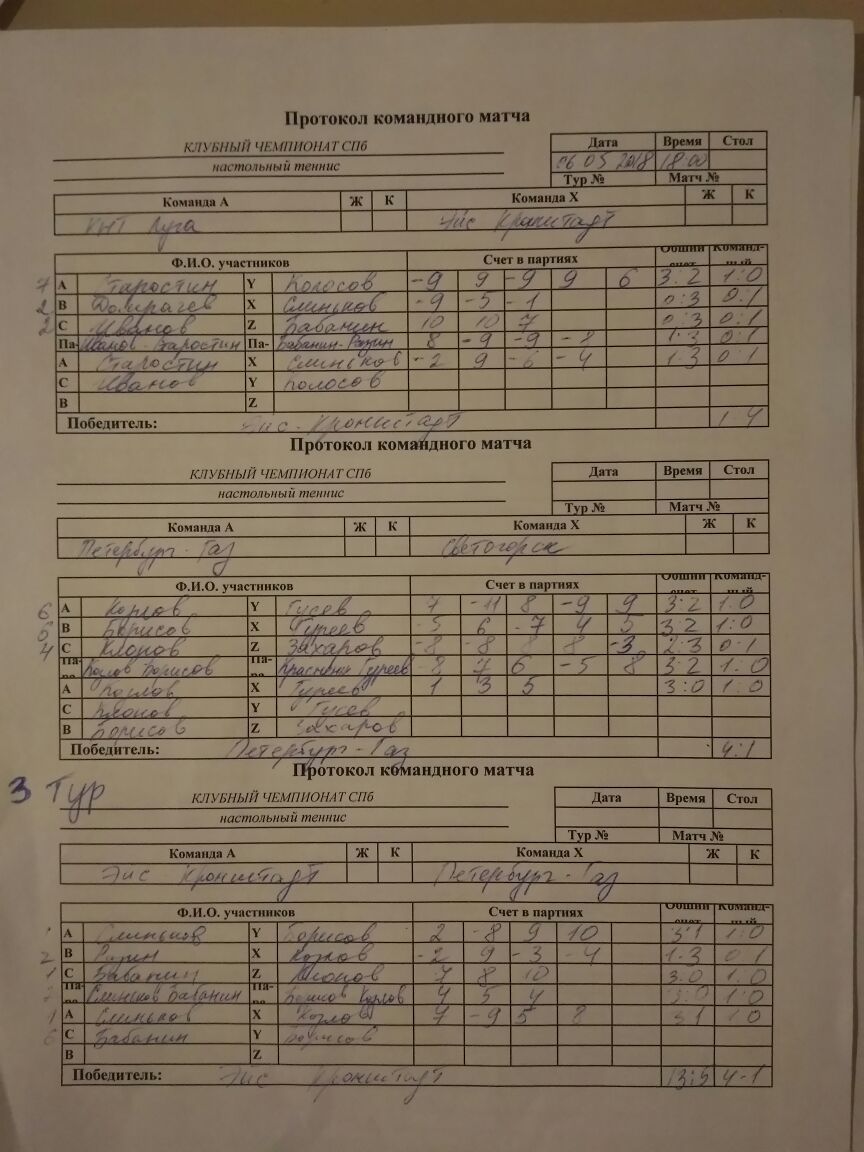 Протокол командного матча
КЛУБНЫЙ ЧЕМПИОНАТ СПб Дата Время Стол
настольный теннис 06 05 2018 18:00
Тур № Матч №
Команда А Ж К Команда Х Ж К
КНТ Луга Эйс Кронштадт
Ф.И.О. участников Счет в партиях Общий счет Команд-ный
7 A Старостин Y Колосов -9 9 -9 9 6 3:2 1:0
2 B X Слиньков -9 -5 -1 0:3 0:1
2 C Иванов Z Бабанин 10 10 7 0:3 0:1
Па- Иванов - Старостин Па- Бабанин - Разин 8 -9 -9 -8 1:3 0:1
A Старостин X Слиньков -2 9 -6 -4 1:3 0:1
C Иванов Y Колосов
B Z
Победитель: Эйс - Кронштадт 1-4
Протокол командного матча
КЛУБНЫЙ ЧЕМПИОНАТ СПб Дата Время Стол
настольный теннис
Тур № Матч №
Команда А Ж К Команда Х Ж К
Петербург - Газ Светогорск
Ф.И.О. участников Счет в партиях Общий счет Команд-ный
6 A Козлов Y Гусев 7 -11 8 -9 9 3:2 1:0
6 B Борисов X Гуреев -5 6 -7 4 5 3:2 1:0
4 C Клопов Z Захаров -8 -8 8 8 -3 2:3 0:1
Па-ра Козлов Борисов Па-ра Гуреев -8 7 6 -5 8 3:2 1:0
A Козлов X Гуреев 1 3 5 3:0 1:0
C Клопов Y Гусев
B Борисов Z Захаров
Победитель: Петербург - Газ 4:1
Протокол командного матча
3 Тур
КЛУБНЫЙ ЧЕМПИОНАТ СПб Дата Время Стол
настольный теннис
Тур № Матч №
Команда А Ж К Команда Х Ж К
Эйс Кронштадт Петербург - Газ
Ф.И.О. участников Счет в партиях Общий счет Команд-ный
A Слиньков Y Борисов 2 -8 9 10 3:1 1:0
2 B Разин X Козлов -2 9 -3 -4 1-3 0:1
1 C Бабанин Z Клопов 7 8 10 3:0 1:0
Па-ра Слиньков Бабанин Па-ра Борисов Козлов 4 5 4 3:0 1:0
1 A Слиньков X Козлов 7 -9 5 8 3:1 1:0
6 C Бабанин Y Борисов
B Z
Победитель: Эйс Кронштадт 13:5 4-1